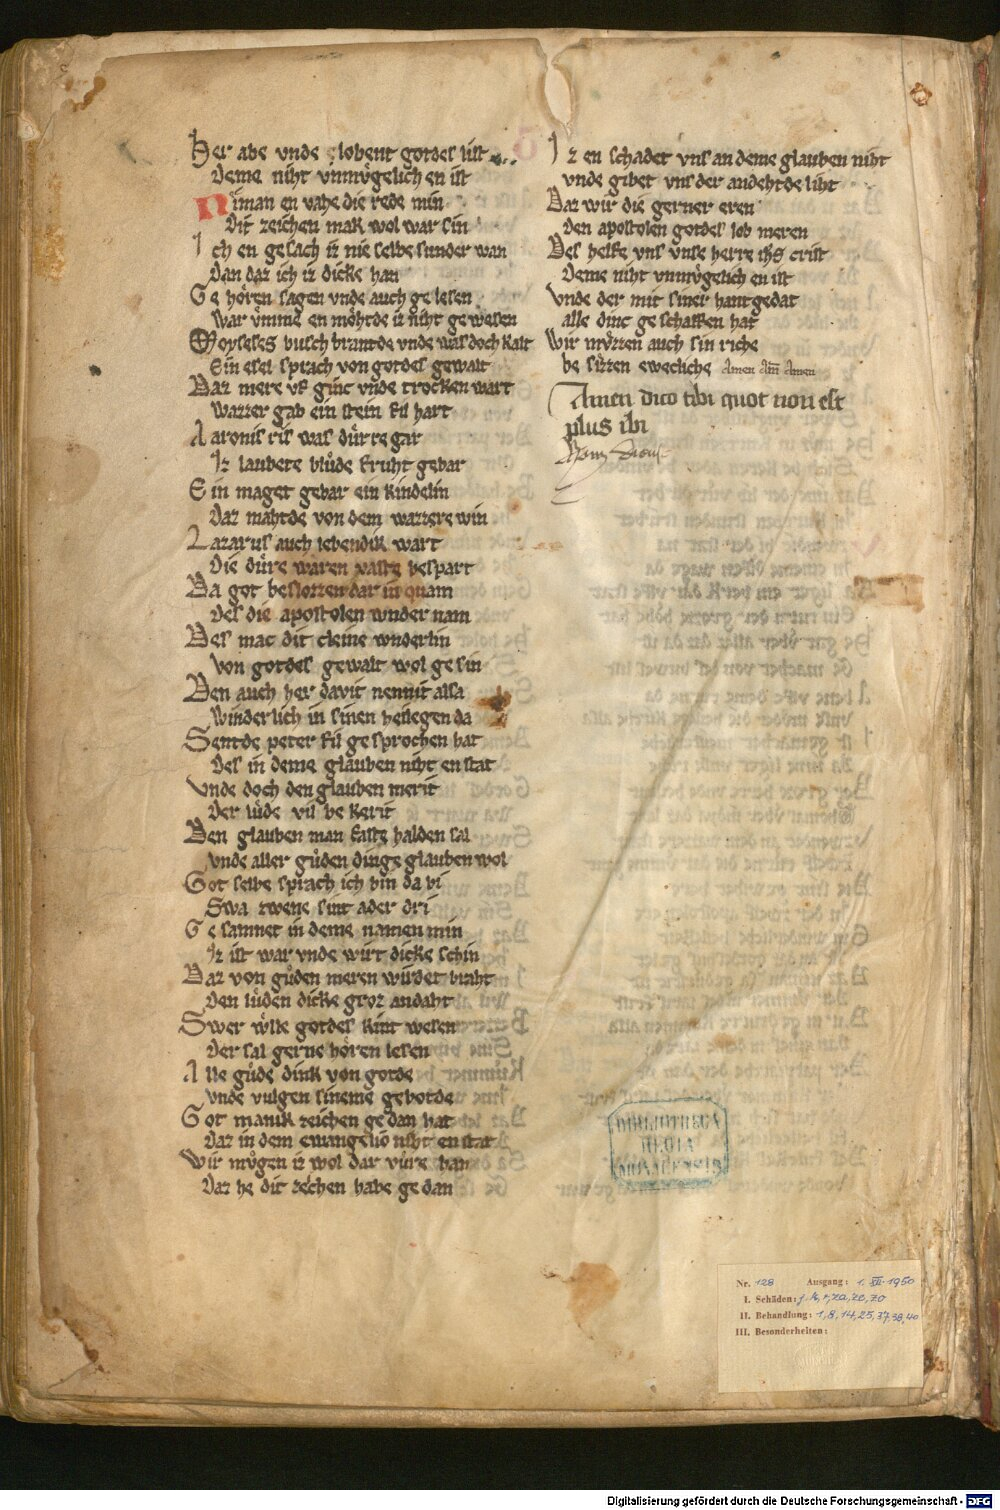 Her abe vnde lobent gotdes list
Deme niht vnmv̊gelich en ist
Niman en vahe die rede min
Dit zeichen mak wol war sin
Ich en gesach iz nie selbe sunder wan
Dan daz ich iz dicke han
Ge hören sagen vnde auch ge lesen
War v̈mme en möhtde iz niht gewesen
Moyseses busch brantde vnde was doch kalt
Ein esel sprach von gotdes gewalt
Daz mere vf ginc vnde trocken wart
Wazzer gab ein stein fil hart
Aaronis ris was dürre gar
Iz laubete blůde fruht gebar
Ein maget gebar ein kindelin
Daz mahtde von dem wazzere win
Lazarus auch lebendik wart
Die düre waren vaste bespart
Da got beslozzen dar in quam
Des die apostolen wnder nam
Des mac dit cleine wnderlin
Von gotdes gewalt wol ge sin
Den auch her davit nennit alsa
Winderlich in sinen heilegen da
Sentde peter fil ge sprochen hat
Des in deme glauben niht en stat
Vnde doch den glauben merit
Der lůde vil be kerit
Den glauben man faste halden sal
Vnde aller gůden dinge glauben wol
Got selbe sprach ich bin da bi
Swa zwene sint ader dri
Ge samnet in deme namen min
Iz ist war vnde wirt dicke schin
Daz von gůden meren wirdet braht
Den lůden dicke groz andaht
Swer wölle gotdes kint wesen
Der sal gerne hören lesen
Alle gůde dink von gotde
Vnde vulgen sineme gebotde
Got manik zeichen ge dan hat
Daz in dem ewangelio niht en stat
Wir mv̊gen iz wol dar vüre han
Daz he dit zeichen habe ge dan
Iz en schadet vns an deme glauben niht
Vnde gibet vns der andehtde liht
Daz wir die gerner eren
Den apostolen gotdes lob meren
Des helfe vns vnse herre ihs crist
Deme niht vnmv̊gelich en ist
Vnde der mit siner hantgedat
alle dinc ge schaffen hat
Wir mv̊zzen auch sin riche
be sizzen ewecliche Amen Am̅ Amen
Amen dico tibi quot non est
plus ibi
BIBLIOTHECA
REGIA
MONACENSIS
Nr. 128 Ausgang: 1. XII. 1950
I. Schäden: f, k, r, za, ze, zo
II. Behandlung: 1, 8, 14, 25, 37, 38, 40
III. Besonderheiten:
Digitalisierung gefördert durch die Deutsche Forschungsgemeinschaft - DFG